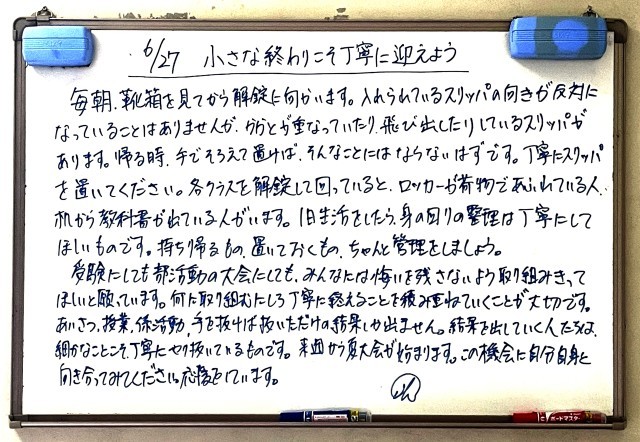 6/27 小さな終わりこそ丁寧に迎えよう
毎朝、靴箱を見てから解錠に向かいます。入れられているスリッパの向きが反対に
なっていることはありませんが、かかとが重なっていたり、飛び出したりしているスリッパが
あります。帰る時、手でそろえて置けば、そんなことにはならないはずです。丁寧にスリッパ
を置いてください。各クラスを解錠して回っていると、ロッカーが荷物であふれている人、
机から教科書が出ている人がいます。1日生活をしたら、身の回りの整理は丁寧にして
ほしいものです。持ち帰るもの、置いておくもの、ちゃんと管理をしましょう。
受験にしても部活動の大会にしても、みんなには悔いを残さないよう取り組みきって
ほしいと願っています。何に取り組むにしろ丁寧に終えることを積み重ねていくことが大切です。
あいさつ、授業、係活動、手を抜けば抜いただけの結果しか出ません。結果を出していく人たちは、
細かなことこそ丁寧にやり抜いているものです。来週から夏大会が始まります。この機会に自分自身と
向き合ってみてください。応援しています。
ボードマスター